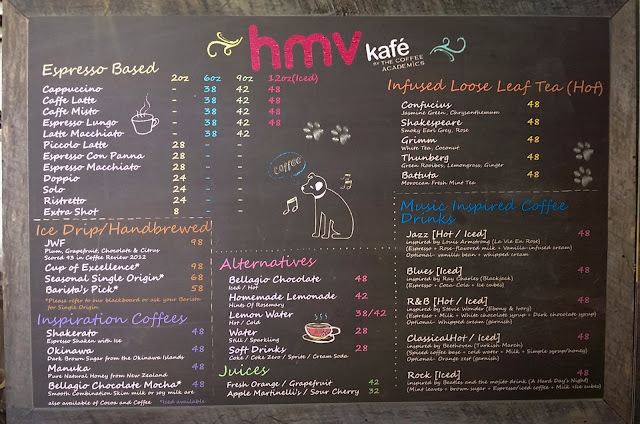 hmv kafé
BY THE COFFEE
ACADEMICS
Espresso Based 2oz 6oz 9oz 12oz(Iced)
Cappuccino - 38 42 48
Caffe Latte - 38 42 48
Caffe Misto - 38 42 48
Espresso Lungo - 38 42 48
Latte Macchiato - 38 42
Piccolo Latte 28 - -
Espresso Con Panna 28 - -
Espresso Macchiato 28 - -
Doppio 24 - -
Solo 24 - -
Ristretto 24 - -
Extra Shot 8 - -
Ice Drip/Handbrewed
JWF 98
Plum, Grapefruit, Chocolate & Citrus
Scored 93 in Coffee Review 2012
Cup of Excellence* 98
Seasonal Single Origin* 68
Barista's Pick* 58
*Please refer to our blackboard or ask your Barista
for Single Origin
Inspiration Coffees
Shakerato 48
Espresso Shaken with Ice
Okinawa 48
Dark Brown Sugar from the Okinawa Islands
Manuka 48
Pure Natural Honey from New Zealand
Bellagio Chocolate Mocha* 48
Smooth Combination Skim milk or soy milk are
also available of Cocoa and Coffee *Iced available
coffee
Alternatives
Bellagio Chocolate 48
Iced / Hot
Homemade Lemonade 42
Hints Of Rosemary
Lemon Water 38/42
Hot / Cold
Water 28
Still / Sparkling
Soft Drinks 28
Coke / Coke Zero / Sprite / Cream Soda
Juices
Fresh Orange / Grapefruit 42
Apple Martinelli's / Sour Cherry 32
Infused Loose Leaf Tea (Hot)
Confucius 48
Jasmine Green, Chrysanthemum
Shakespeare 48
Smoky Earl Grey, Rose
Grimm 48
White Tea, Coconut
Thunberg 48
Green Rooibos, Lemongrass, Ginger
Battuta 48
Moroccan Fresh Mint Tea
Music Inspired Coffee
Drinks
Jazz [Hot / Iced] 48
inspired by Louis Armstrong (La Vie En Rose)
(Espresso + Rose-flavored milk + Vanilla-infused cream)
Optional- vanilla bean + whipped cream
Blues [Iced] 48
inspired by Ray Charles (Blackjack)
(Espresso + Coca-Cola + Ice cubes)
R&B [Hot / Iced] 48
inspired by Stevie Wonder (Ebony & Ivory)
(Espresso + Milk + White chocolate syrup + Dark chocolate syrup)
Optional- Whipped cream (garnish)
ClassicalHot / Iced] 48
inspired by Beethoven (Turkish March)
(Spiced coffee base + cold water + Milk + Simple syrup/honey)
Optional- Orange zest (garnish)
Rock [Iced] 48
inspired by Beatles and the mojito drink (A Hard Day's Night)
(Mint leaves + brown sugar + Espresso/iced coffee + Milk +Ice cubes)